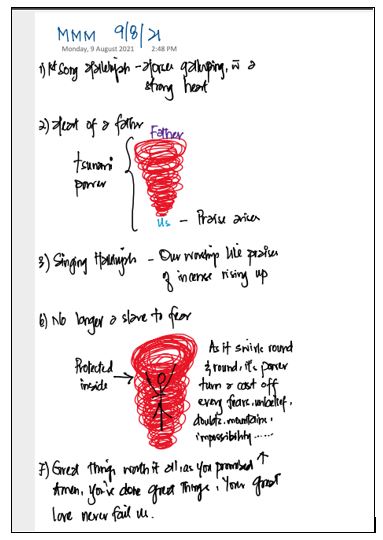 MMM 9/8/21
Monday, 9 August 2021 2:48 PM
1) 1st Song Hallelujah - Horses galloping, w̄ a
strong heart
2) Heart of a father
Father
tsunami
power
Us - Praise arises
3) Singing Hallelujah - Our worship like praises
of incense rising up
6) No longer a slave to fear
Protected
inside
As it swirls round
& round, its power
turn & cast off
every fears, unbelief,
doubts, mountains,
impossibility ......
7) Great things worth it all, as you promised
Amen, You've done great things, Your great
love never fail us.